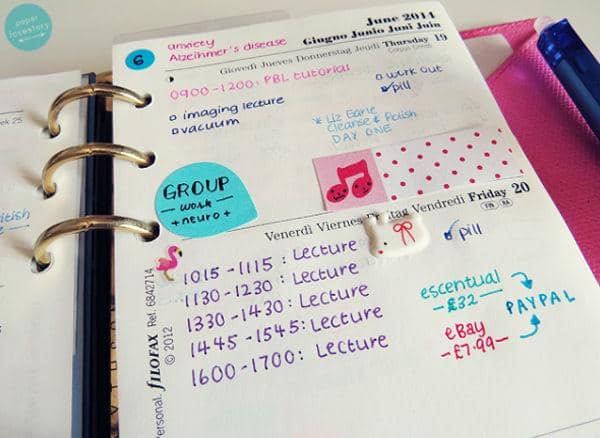 paper
lovestory
June 2014
Giugno Junio Juni Juin
6
anxiety
Alzeihmer's disease
Giovedì Jueves Donnerstag Jeudi Thursday 19
Corpus Christi
0900-1200: PBL tutorial
imaging lecture
vacuum
work out
pill
* Liz Earle
Cleanse & Polish
DAY ONE
GROUP
- work -
+ neuro +
Venerdì Viernes Vendredi Friday 20
pill
1015 - 1115 : Lecture
1130 - 1230 : Lecture
1330 - 1430 : Lecture
1445 - 1545 : Lecture
1600 - 1700 : Lecture
escentual
- £32 -
eBay
- £7.99 -
PAYPAL
ersonal. FILOFAX Ref. 6842714
© 2012
ek 25
itish